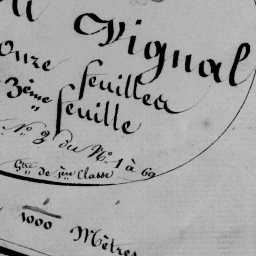 du Vignal
Onze feuilles
3ème feuille
N.º 9 du N.º 1 à 69
Gtre de 1ère Classe
1000 Mètres